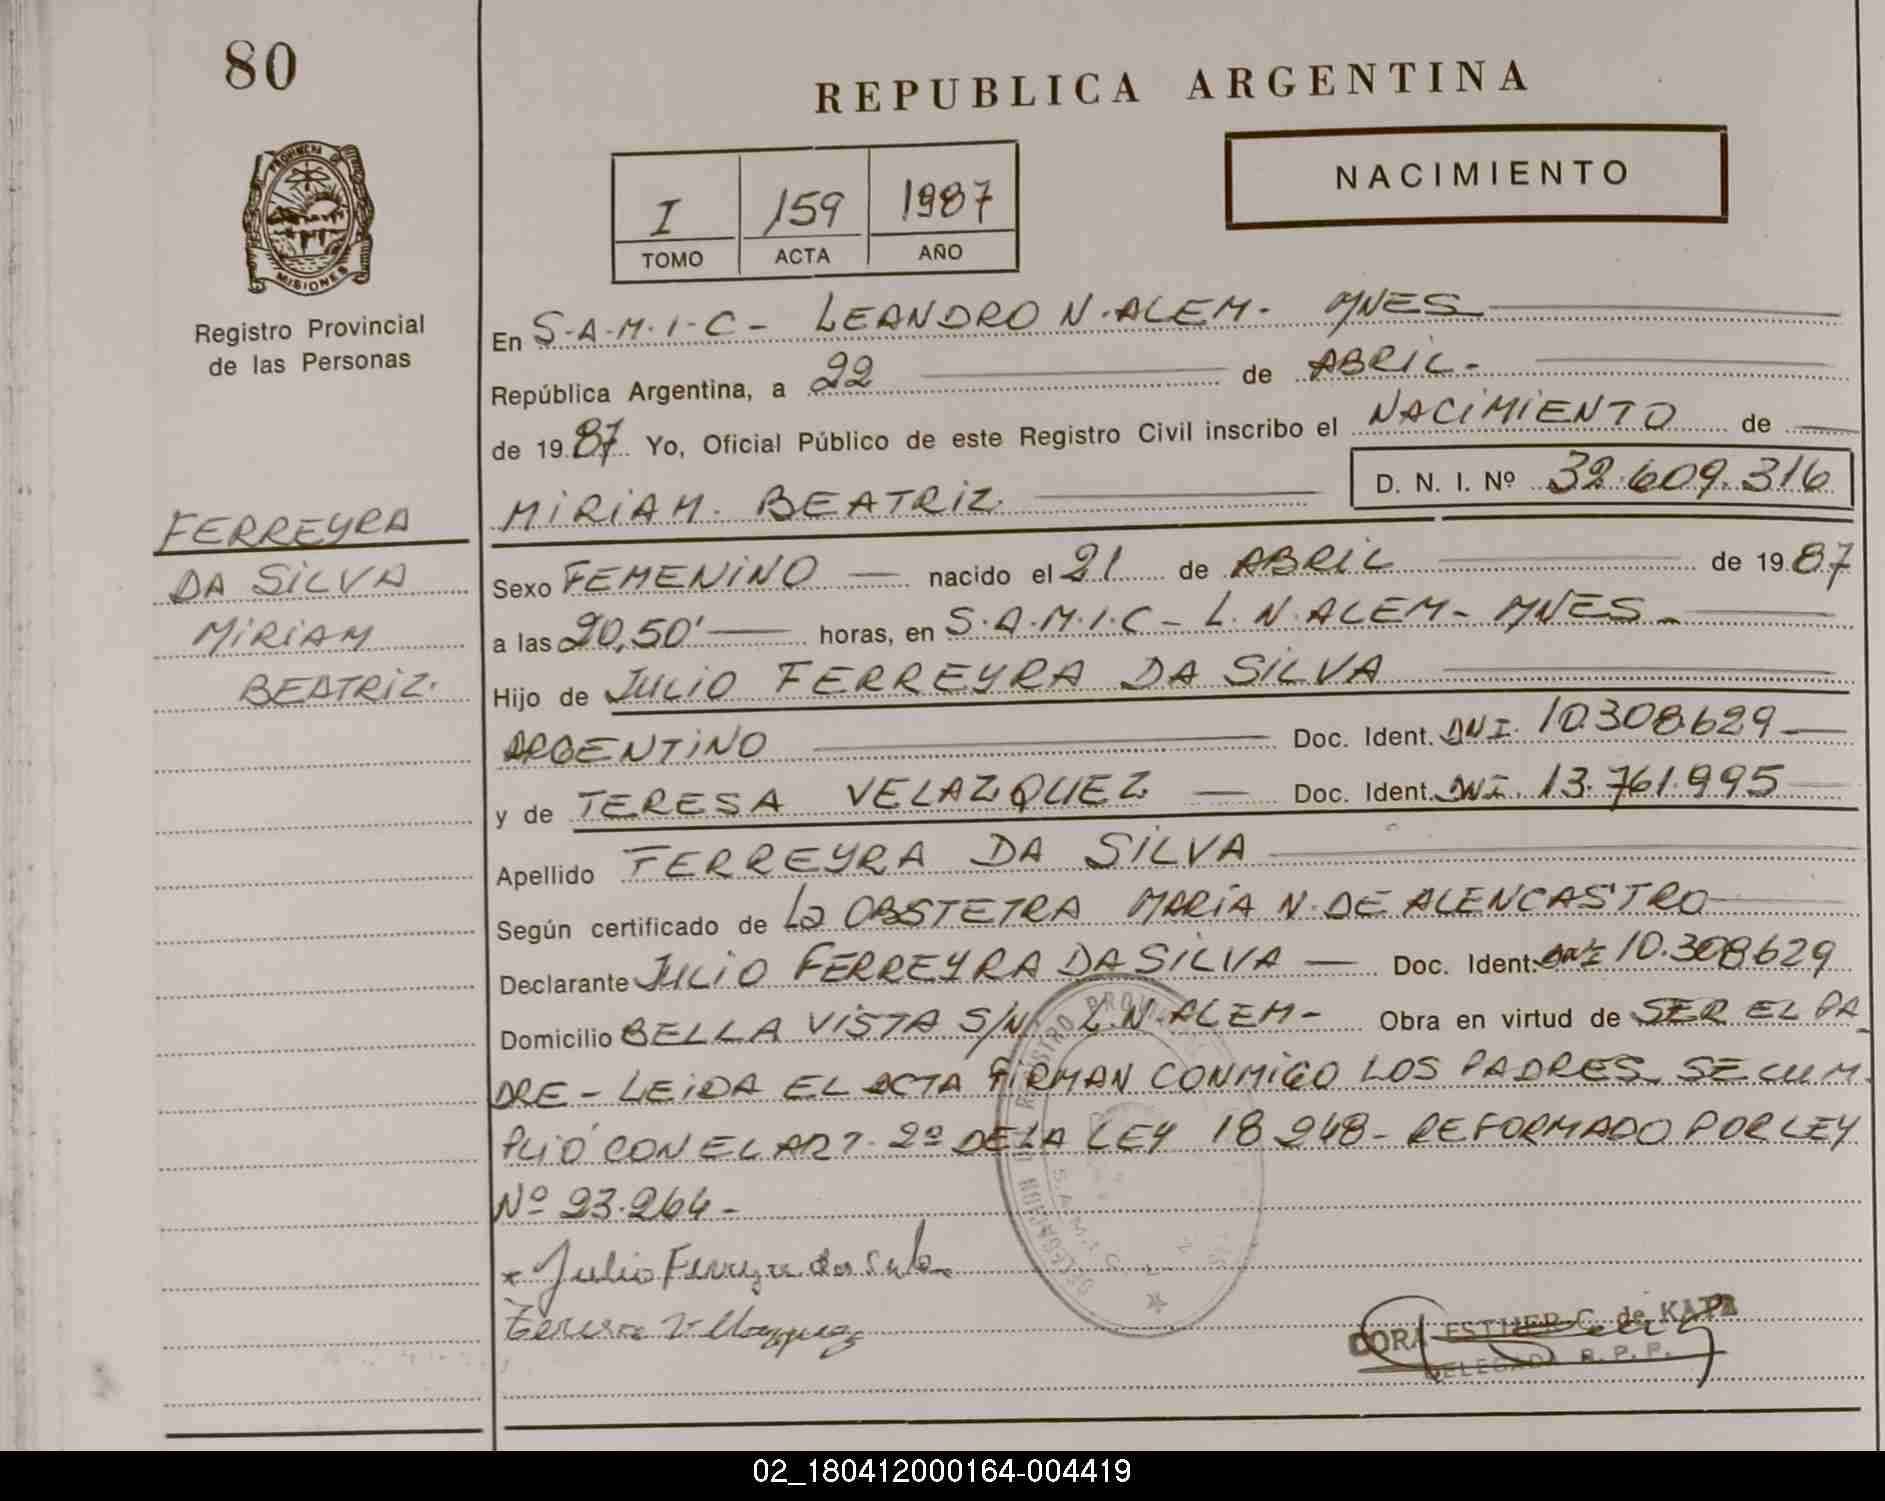 80
REPUBLICA ARGENTINA
NACIMIENTO
I 159 1987
TOMO ACTA AÑO
PROVINCIA DE
MISIONES
Registro Provincial
de las Personas
En S.A.M.I.C - LEANDRO N. ALEM - MNES
República Argentina, a 22 de ABRIL -
de 19 87 Yo, Oficial Público de este Registro Civil inscribo el NACIMIENTO de
MIRIAM. BEATRIZ. D. N. I. Nº 32.609.316
FERREYRA
DA SILVA
MIRIAM
BEATRIZ.
Sexo FEMENINO nacido el 21 de ABRIL de 19 87
a las 20,50' horas, en S.A.M.I.C - L. N. ALEM - MNES -
Hijo de JULIO FERREYRA DA SILVA
ARGENTINO Doc. Ident. DNI. 10.308.629
y de TERESA VELAZQUEZ Doc. Ident. DNI. 13.761.995
Apellido FERREYRA DA SILVA
Según certificado de La OBSTETRA MARIA N. DE ALENCASTRO
Declarante JULIO FERREYRA DA SILVA Doc. Ident. DNI 10.308629
Domicilio BELLA VISTA S/N L.N. ALEM - Obra en virtud de SER EL PA
DRE - LEIDA EL ACTA FIRMAN CONMIGO LOS PADRES SE CUM
PLIÓ CON EL ART. 2º DE LA LEY 18248 - REFORMADO POR LEY
Nº 23.264 -
Julio Ferreyra da Silva
Teresa Velazquez
CORA ESTHER C. de KATZ
DELEGADA R.P.P.
02_180412000164-004419